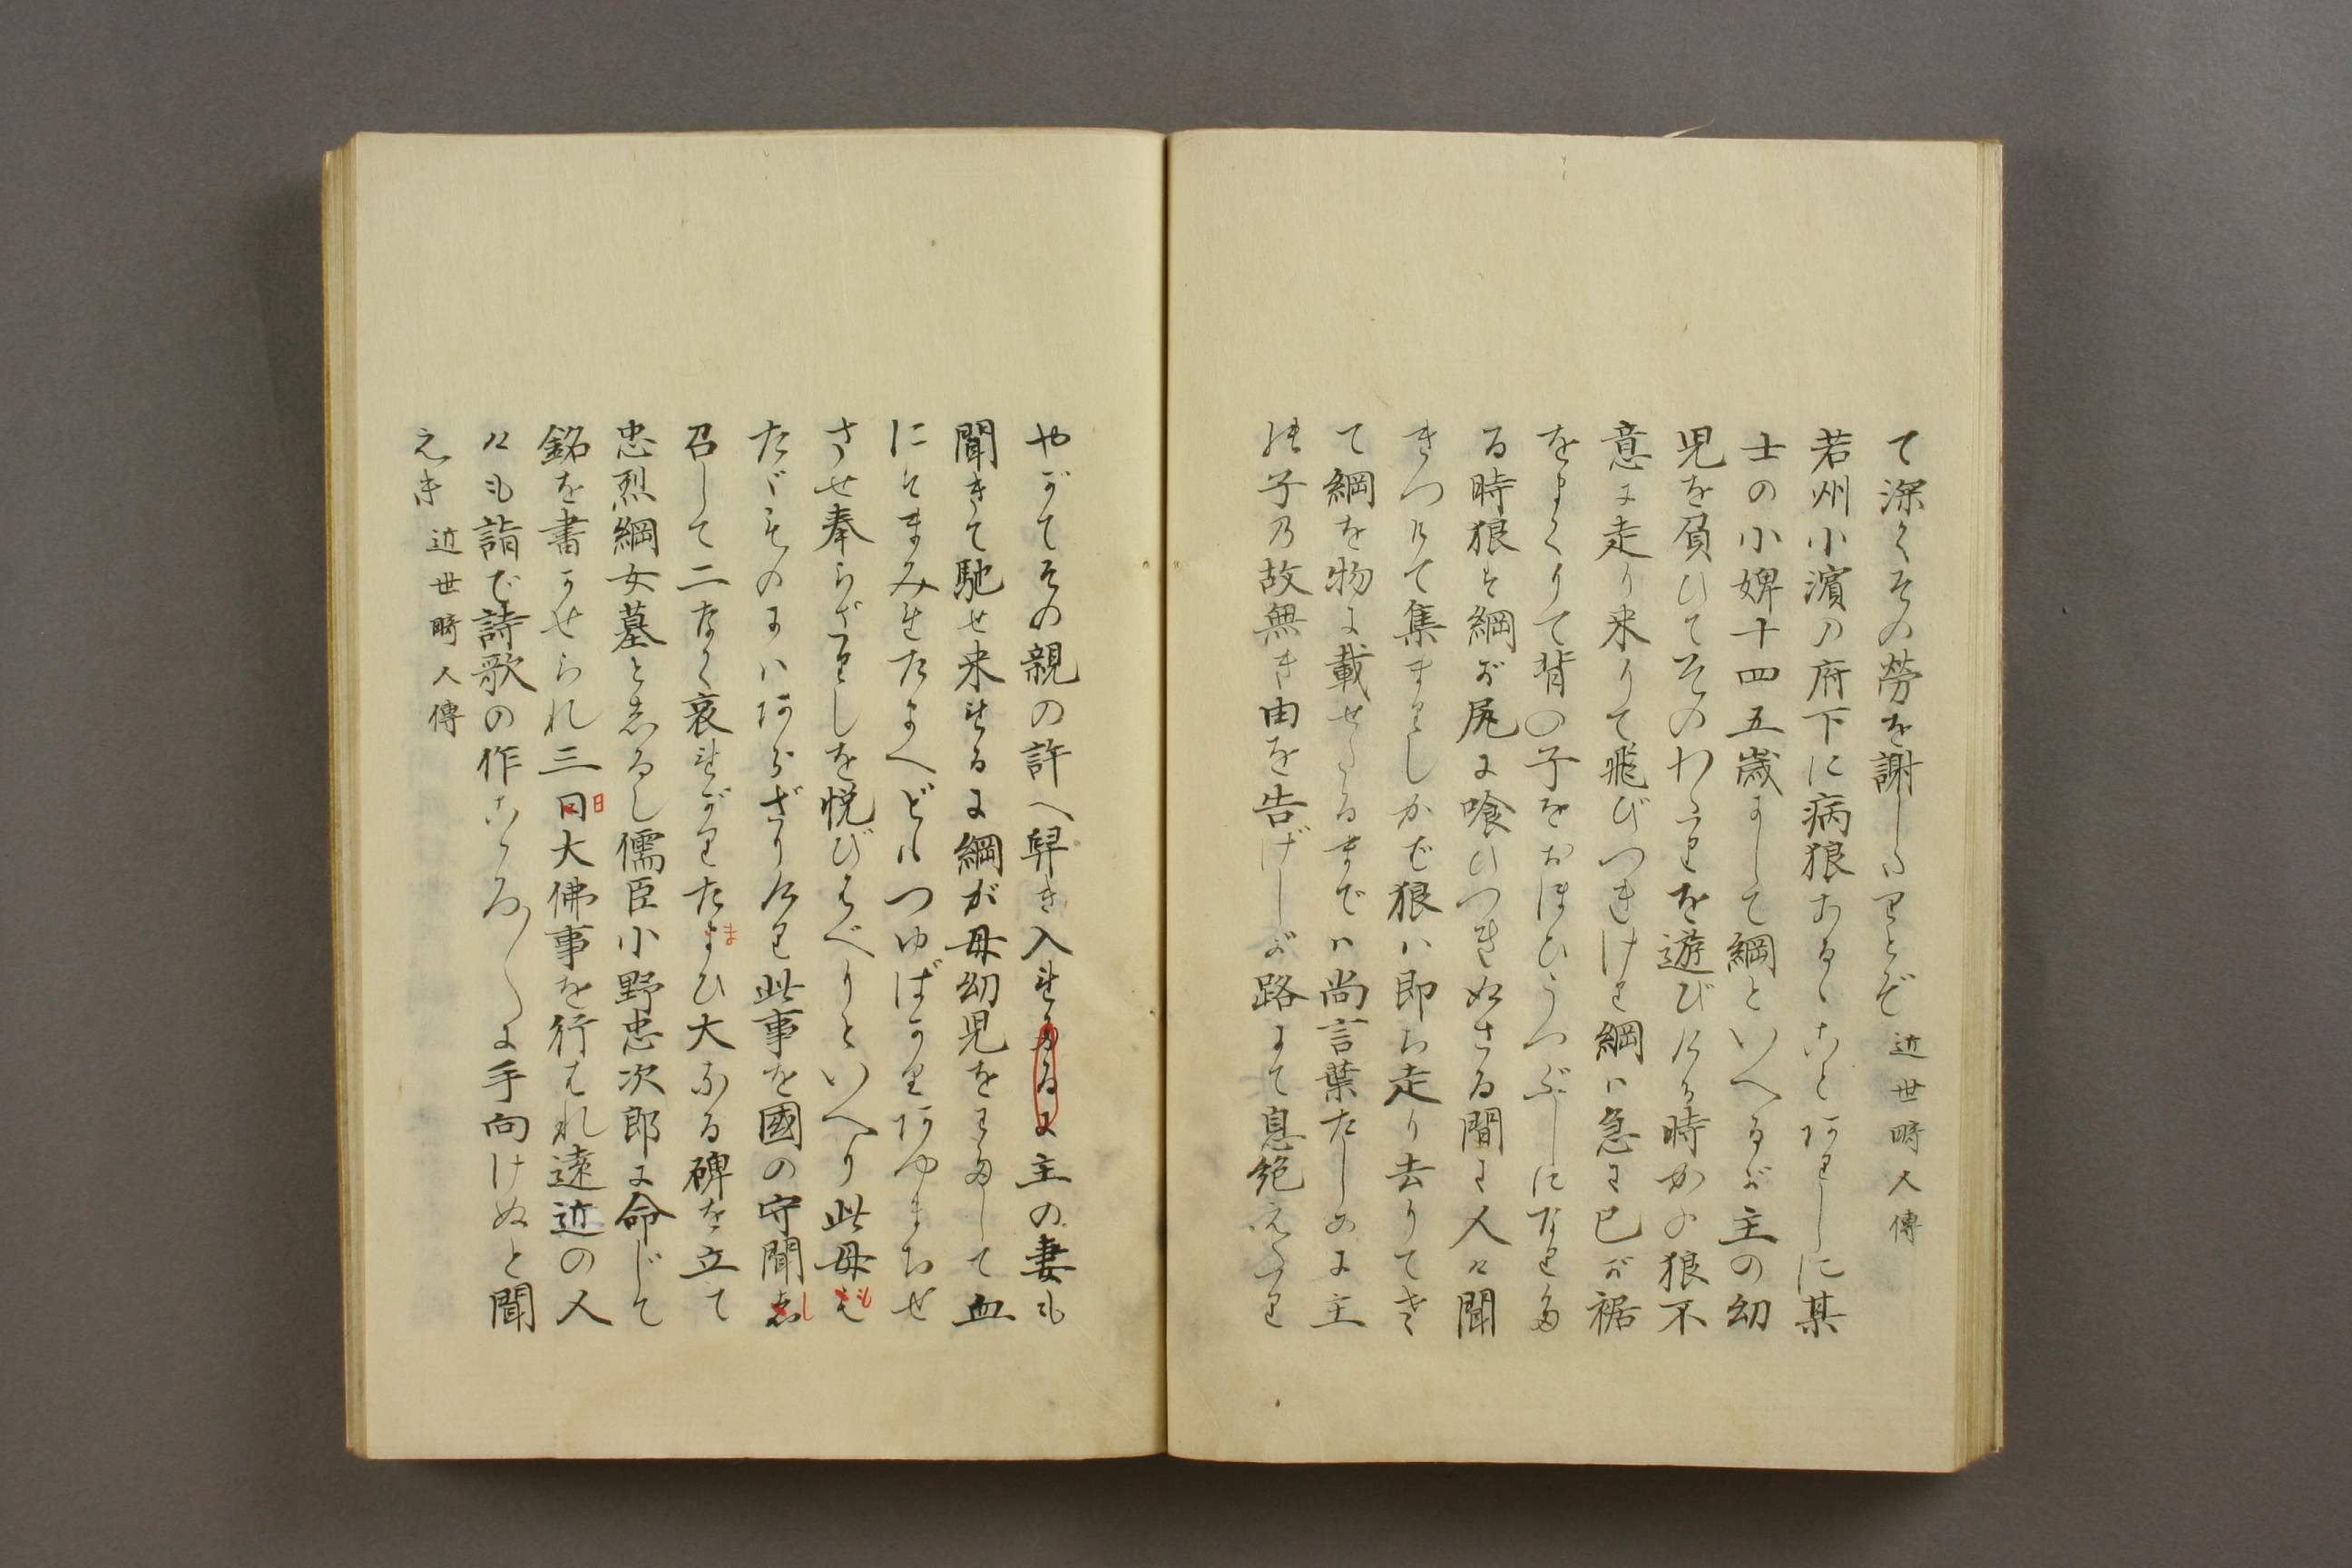 て深くその勞を謝したりとぞ 近世畸人傳
若州小濱の府下に病狼あるゝことありしに某
士の小婢十四五歳にして綱といへるが主の幼
児を負ひてそのわたりを遊びける時かの狼不
意に走り来りて飛びつきければ綱ハ急に己が裾
をまくりて背の子をおほひうつぶしになりた
る時狼は綱が尻に喰ひつきぬさる間に人々聞
きつけて集まりしかば狼ハ即ち走り去りてき
て綱を物に載せたるまでハ尚言葉たしかに主
の子の故無き由を告げしが路にて息絶えたり
やがてその親の許へ舁き入れたるに主の妻も
聞きて馳せ来れるに綱が母幼児をわたして血
にそまみれたまへどもつゆばかりあやまちせ
させ奉らざりしを悦びはべりといへり此母も
たゞものにハあらざりけり此事を國の守聞し
召して二なく哀れがりたまひ大なる碑を立て
忠烈綱女墓としるし儒臣小野忠次郎に命じて
銘を書かせられ三日大佛事を行はれ遠近の人
々も詣で詩歌の作こゝろ〴〵に手向けぬと聞
えき 近世畸人傳